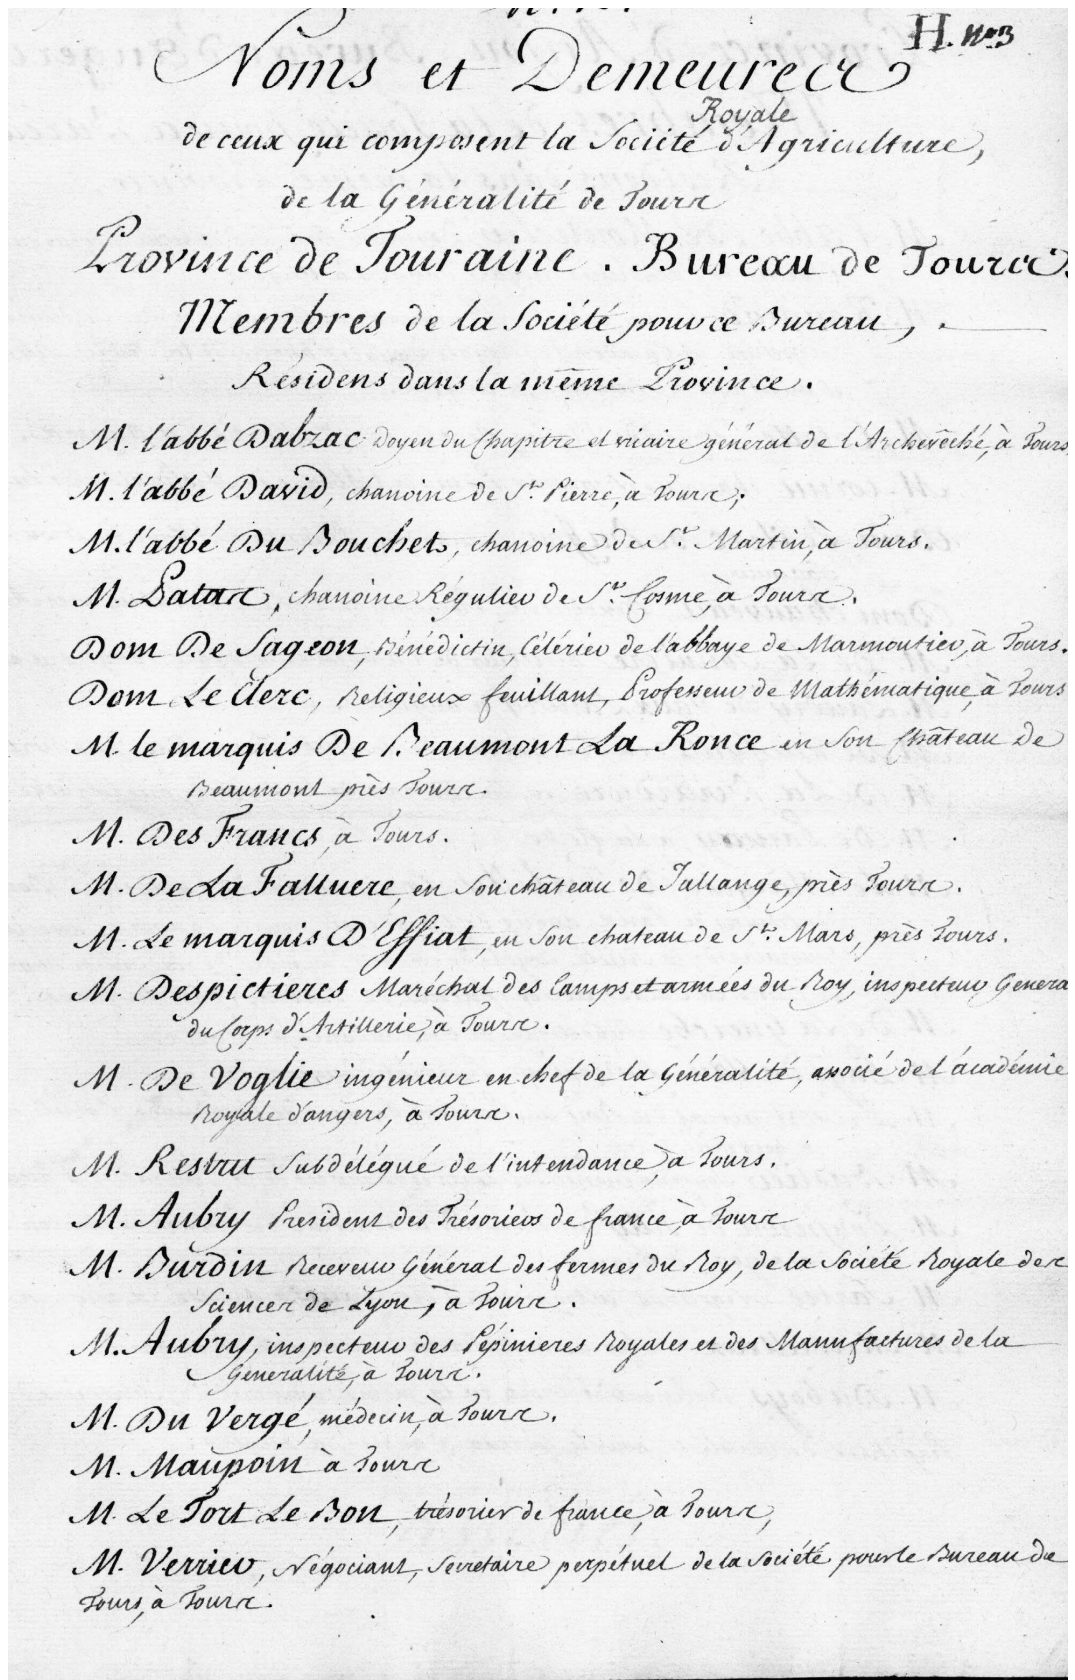 H. N.° 3
Noms et Demeures
Royale
de ceux qui composent la Société d'Agriculture,
de la Généralité de Tours
Province de Touraine. Bureau de Tours.
Membres de la Société pour ce Bureau,
Résidens dans la même Province.
M. l'abbé Dabzac Doyen du Chapitre et vicaire général de l'Archevêché, à Tours.
M. l'abbé David, chanoine de St. Pierre, à Tours.
M. l'abbé Du Bouchet, chanoine de St. Martin, à Tours.
M. Patas, chanoine Régulier de St. Cosme, à Tours.
Dom De Sageon, Bénédictin, Célérier de l'abbaye de Marmoutier, à Tours.
Dom Le Clerc, Religieux feuillant, Professeur de Mathématique, à Tours
M. le marquis De Beaumont La Ronce en son Château de
Beaumont près Tours.
M. Des Francs, à Tours.
M. De La Falluere, en son château de Jallange, près Tours.
M. Le marquis D'Effiat, en son chateau de St. Mars, près Tours.
M. Despictieres Maréchal des Camps et armées du Roy, inspecteur Genera
du Corps d'Artillerie, à Tours.
M. De Voglie ingénieur en chef de la Généralité, associé de l'académie
Royale d'angers, à Tours.
M. Restru Subdélégué de l'intendance, à Tours.
M. Aubry President des Trésoriers de france, à Tours
M. Burdin Receveur Général des fermes du Roy, de la Société Royale des
Sciences de Lyon, à Tours.
M. Aubry, inspecteur des Pépinieres Royales et des Manufactures de la
Generalité, à Tours.
M. Du Vergé, médecin, à Tours.
M. Maupoin à Tours
M. Le Tort Le Bon, trésorier de france, à Tours,
M. Verrier, Négociant, Secretaire perpétuel de la Société pour le Bureau de
Tours, à Tours.